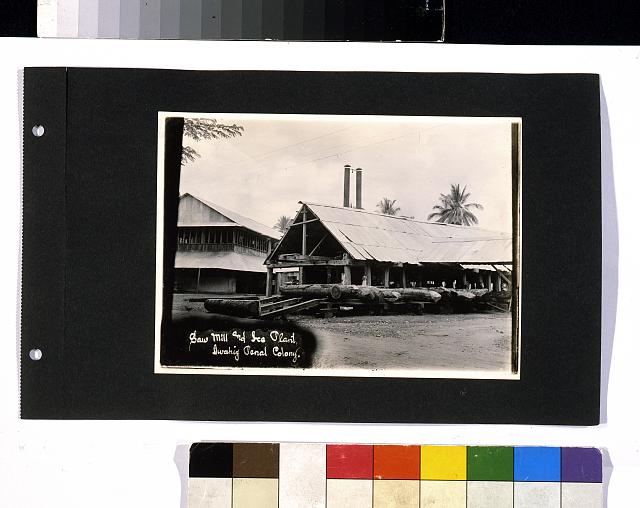 Saw Mill and Ice Plant,
Iwahig Penal Colony.